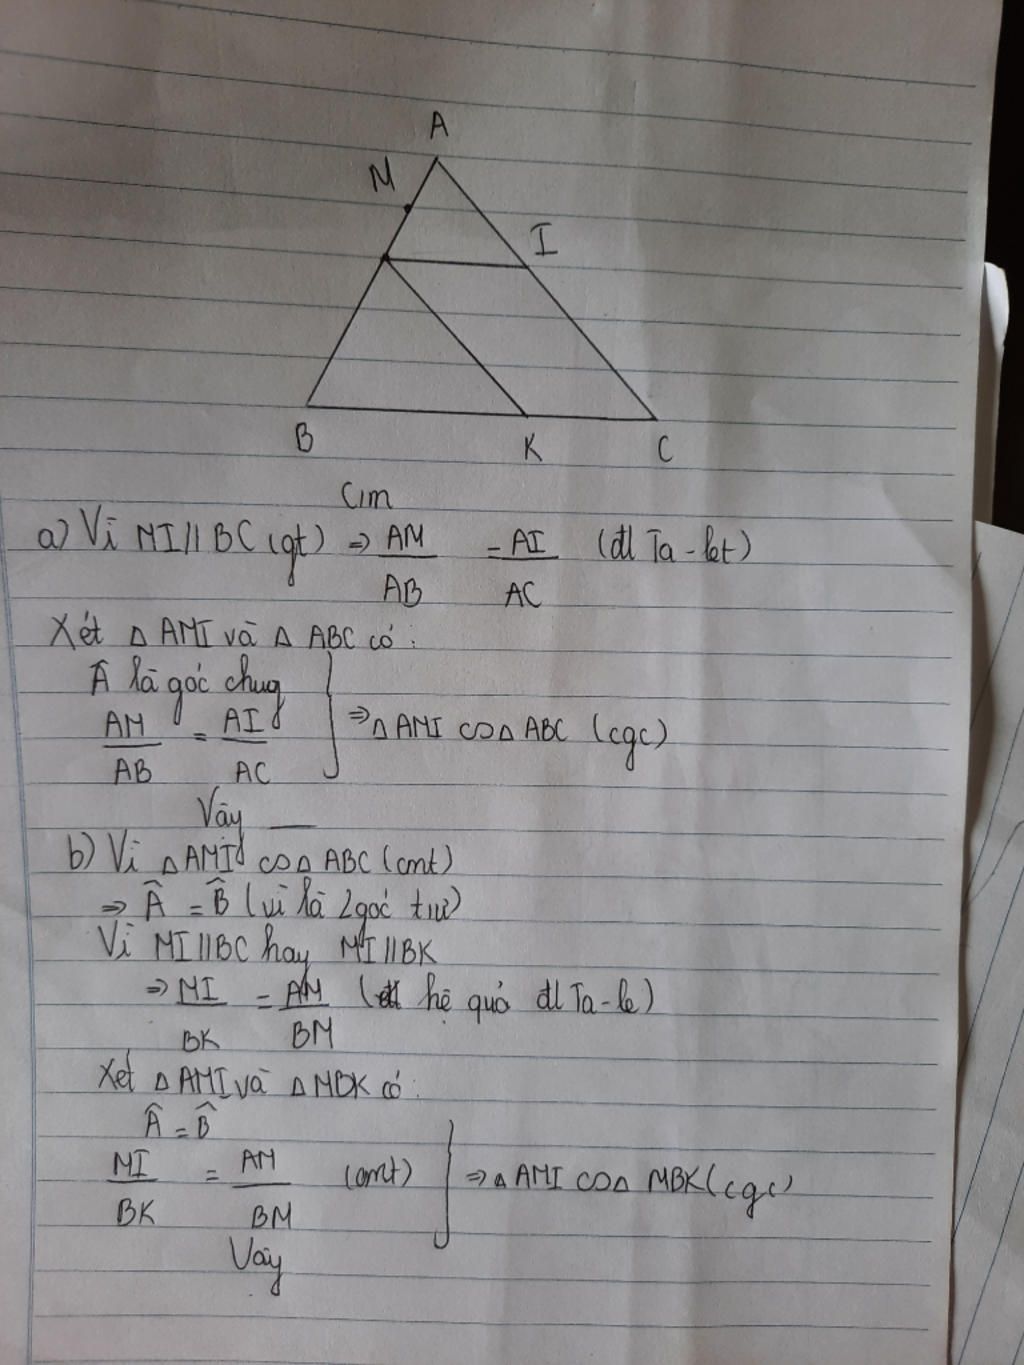 A
M
I
B K C
Cm
a) Vì MI // BC (gt) ⇒ AM/AB = AI/AC (đl Ta-let)
Xét Δ AMI và Δ ABC có:
Â là góc chug
AM/AB = AI/AC } ⇒ Δ AMI ∽ Δ ABC (cgc)
Vậy —
b) Vì Δ AMI ∽ Δ ABC (cmt)
⇒ Â = B̂ (vì là 2 góc t/ư)
Vì MI // BC hay MI // BK
⇒ MI/BK = AM/BM (hệ quả đl Ta-le)
Xét Δ AMI và Δ MBK có:
Â = B̂
MI/BK = AM/BM (cmt) } ⇒ Δ AMI ∽ Δ MBK (cgc)
Vậy